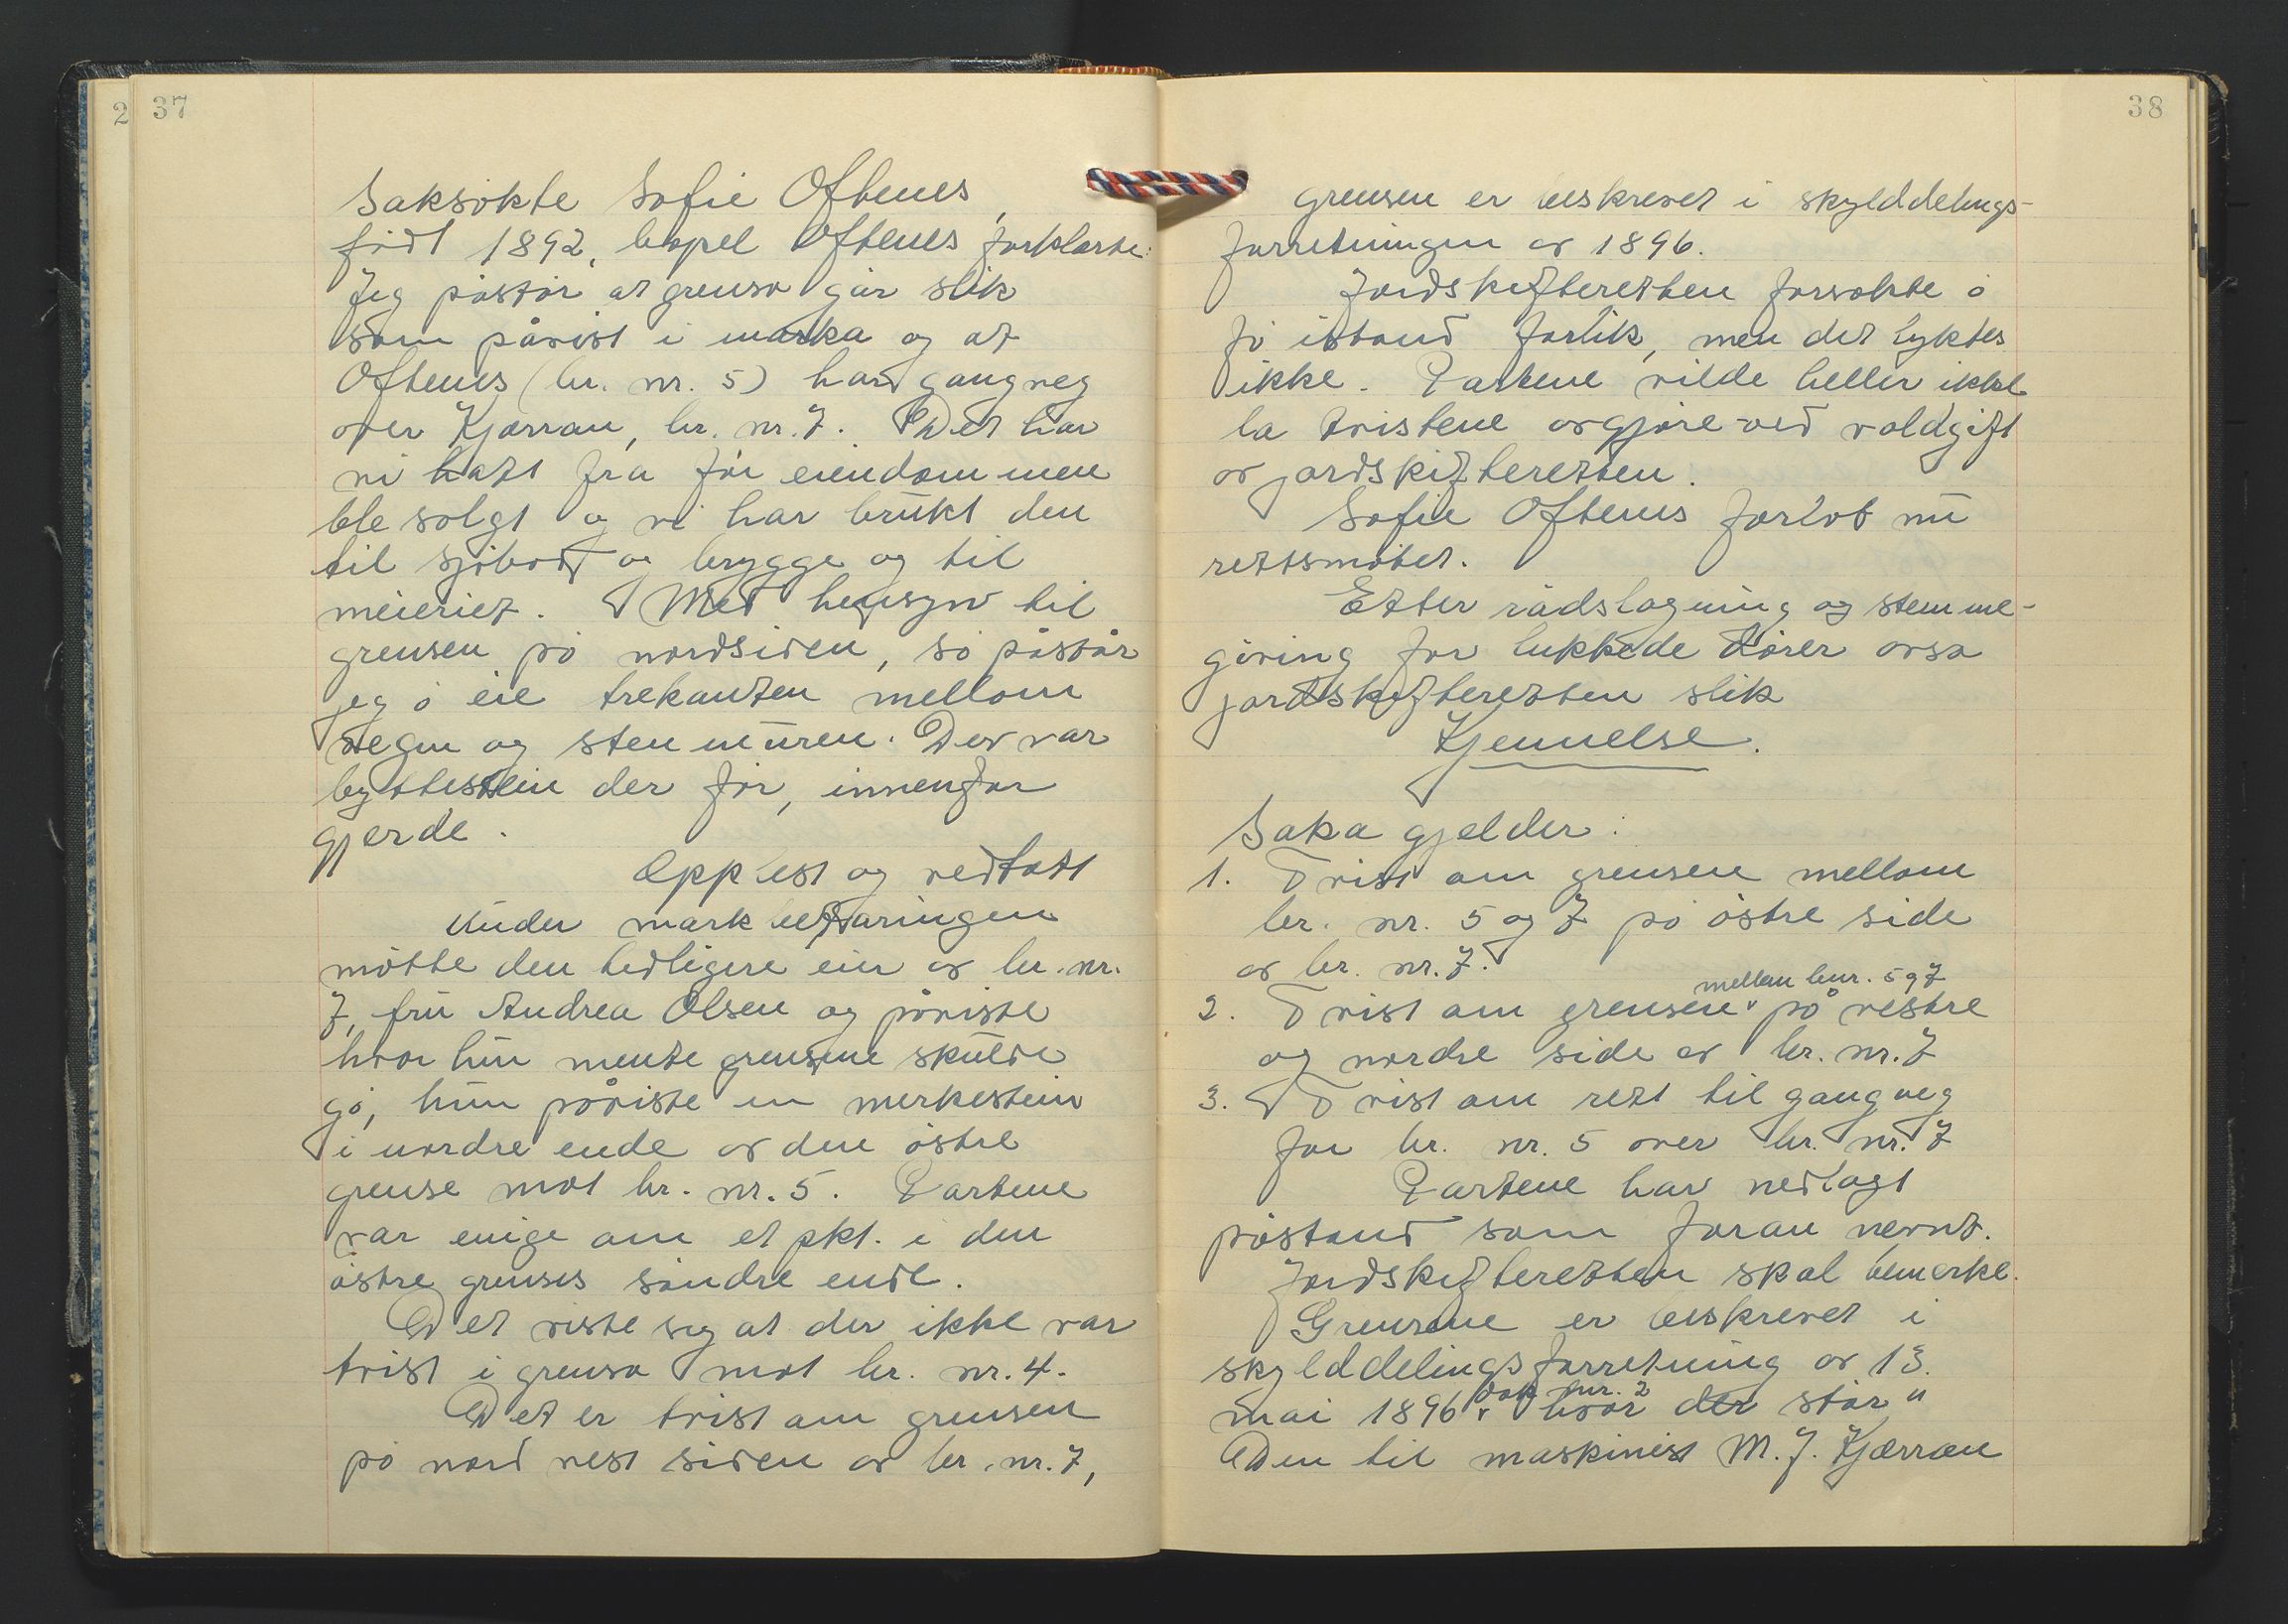 2
37
Saksøkte Sofie Oftenes,
født 1892, bopel Oftenes forklarte:
Jeg påstår at grensa går slik
som påvist i marka og at
Oftenes (br. nr. 5) har gangveg
over Kjærran, br. nr. 7. Det har
vi hatt fra før eiendommen
ble solgt og vi har brukt den
til sjøbod og brygge og til
meieriet. Med hensyn til
grensen på nordsiden, så påstår
jeg å eie trekanten mellom
vegen og stenmuren. Der var
byttestein der før, innenfor
gjerde.
Opplest og vedtatt
Under markbefaringen
møtte den tidligere eier av br. nr.
7, fru Andrea Olsen og påviste
hvor hun mente grensene skulde
gå, hun påviste en merkestein
i nordre ende av den østre
grense mot br. nr. 5. Partene
var enige om et pkt. i den
østre grenses søndre ende.
Det viste sig at der ikke var
tvist i grensa mot br. nr. 4.
Det er tvist om grensen
på nordvestsiden av br. nr. 7,
38
grensen er beskrevet i skylddelings-
forretningen av 1896.
Jordskifteretten forsøkte å
få istand forlik, men det lyktes
ikke. Partene vilde heller ikke
la tvistene avgjøre ved voldgift
av jordskifteretten.
Sofie Oftenes forlot nu
rettsmøtet.
Etter rådslagning og stemme-
givning for lukkede dører avsa
jordskifteretten slik
Kjennelse.
Saka gjelder:
1. Tvist om grensen mellom
br. nr. 5 og 7 på østre side
av br. nr. 7.
mellom bnr. 5 og 7
2. Tvist om grensene på vestre
og nordre side av br. nr. 7
3. Tvist om rett til gangveg
for br. nr. 5 over br. nr. 7
Partene har nedlagt
påstand som foran nevnt.
Jordskifteretten skal bemerke.
Grensene er beskrevet i
skylddelingsforretning av 13.
dok nr. 2
mai 1896 hvor der står "
Den til maskinist M. J. Kjærran